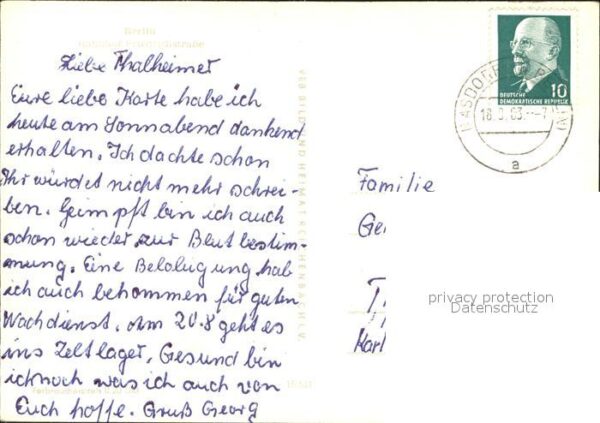 Berlin
Bahnhof Friedrichstraße
Liebe Thalheimer
Eure liebe Karte habe ich
heute am Sonnabend dankend
erhalten. Ich dachte schon
Ihr würdet nicht mehr schrei-
ben. Geimpft bin ich auch
schon wieder zur Blutbestim-
mung. Eine Belobigung hab
ich auch bekommen für guten
Wachdienst. Am 20.8 geht es
ins Zeltlager, Gesund bin
ich noch was ich auch von
Euch hoffe. Gruß Georg
VEB BILD UND HEIMAT REICHENBACH I.V.
10
DEUTSCHE
DEMOKRATISCHE REPUBLIK
18.
63
a
Familie
Ge
T
Karl
privacy protection
Datenschutz